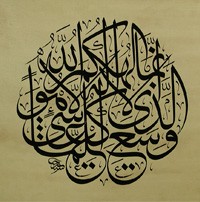 إنما إلهكم الله
الذي لا إله إلا هو
وسع كل شيء علما